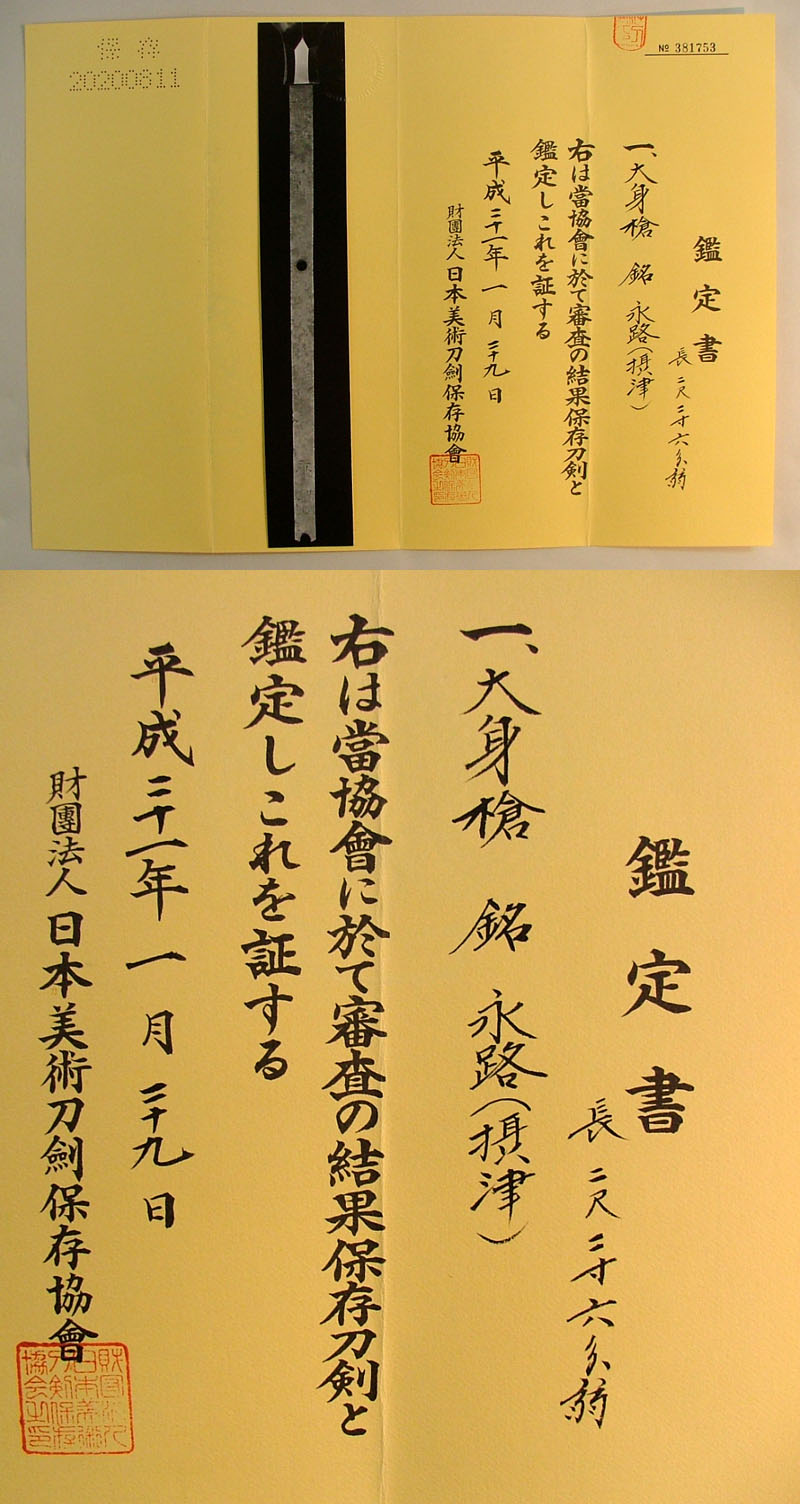 № 381753
鑑定書
長 二尺二寸六分弱
一、大身槍 銘 永路(摂津)
右は當協會に於て審査の結果保存刀剣と
鑑定しこれを証する
平成二十一年 一月 二十九日
財團法人 日本美術刀劍保存協會
保存
20200611
鑑定書
長 二尺二寸六分弱
一、大身槍 銘 永路(摂津)
右は當協會に於て審査の結果保存刀剣と
鑑定しこれを証する
平成二十一年 一月 二十九日
財團法人 日本美術刀劍保存協會